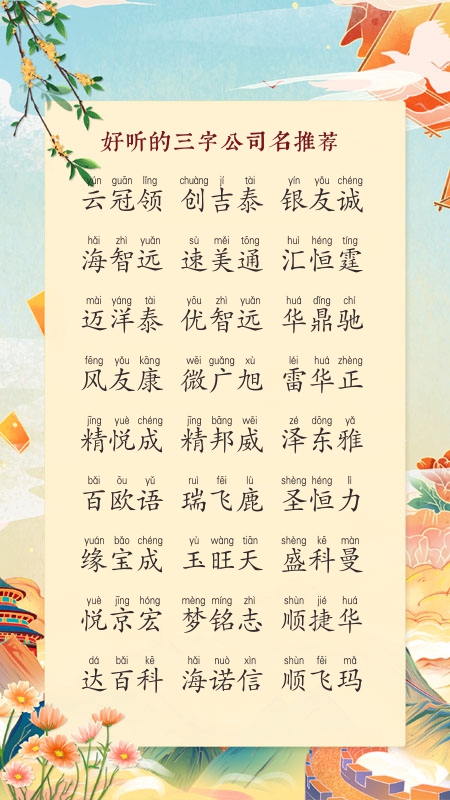 好听的三字公司名推荐
yún guān lǐng chuàng jí tài yín yǒu chéng
云冠领 创吉泰 银友诚
hǎi zhì yuǎn sù měi tōng huì héng tíng
海智远 速美通 汇恒霆
mài yáng tài yōu zhì yuǎn huá dǐng chí
迈洋泰 优智远 华鼎驰
fēng yǒu kāng wēi guǎng xù léi huá zhèng
风友康 微广旭 雷华正
jīng yuè chéng jīng bāng wēi zé dōng yǎ
精悦成 精邦威 泽东雅
bǎi ōu yǔ ruì fēi lù shèng héng lì
百欧语 瑞飞鹿 圣恒力
yuán bǎo chéng yù wàng tiān shèng kē màn
缘宝成 玉旺天 盛科曼
yuè jīng hóng mèng míng zhì shùn jié huá
悦京宏 梦铭志 顺捷华
dá bǎi kē hǎi nuò xìn shùn fēi mǎ
达百科 海诺信 顺飞玛